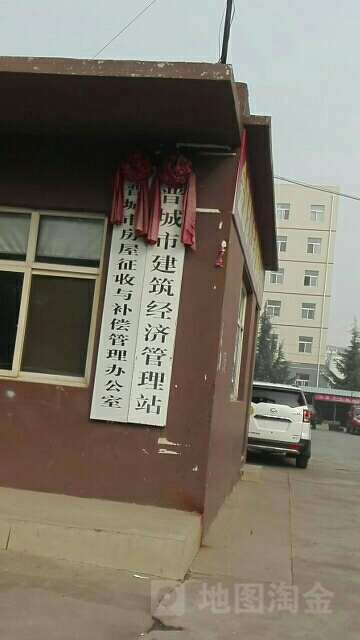 晋城市建筑经济管理站
晋城市房屋征收与补偿管理办公室
地图淘金